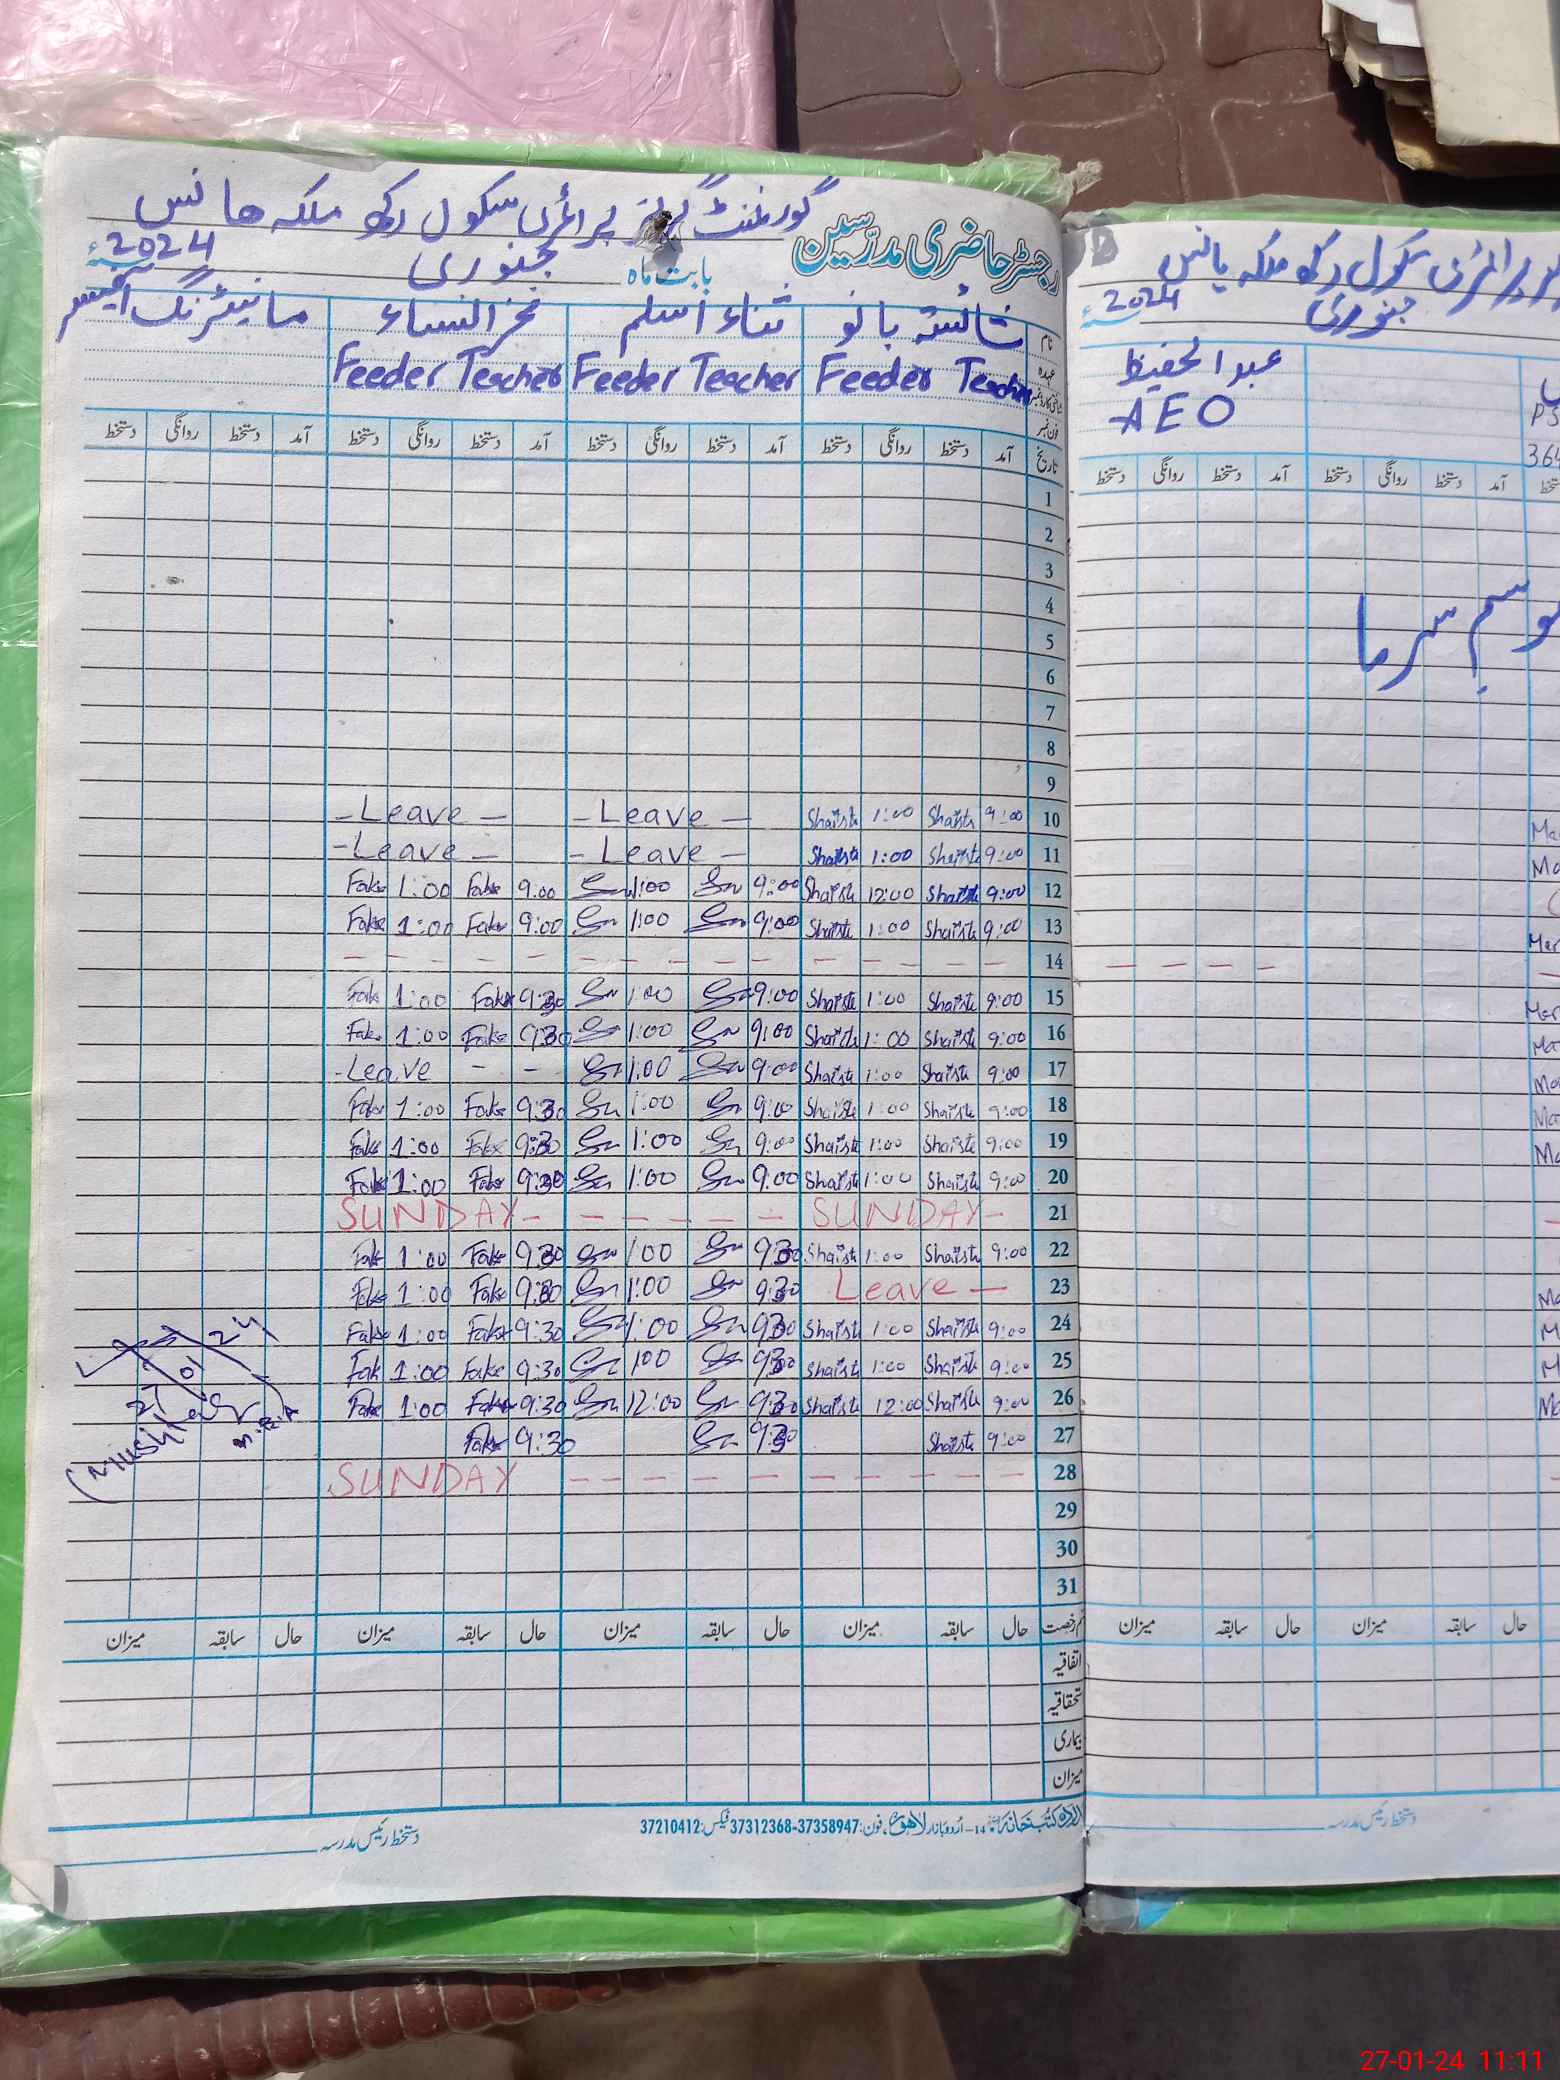 گورنمنٹ گرلز پرائمری سکول رکھ ملکہ ہانس
رجسٹر حاضری مدرسین
بابت ماہ جنوری 2024ء
نام شائستہ بانو ثناء اسلم فخر النساء مانیٹرنگ آفیسر
عہدہ Feeder Teacher Feeder Teacher Feeder Teacher
شناختی کارڈ نمبر
فون نمبر
تاریخ آمد دستخط روانگی دستخط آمد دستخط روانگی دستخط آمد دستخط روانگی دستخط آمد دستخط روانگی دستخط
1
2
3
4
5
6
7
8
9
10 9:00 Shaista 1:00 Shaista - Leave - - Leave -
11 9:00 Shaista 1:00 Shaista - Leave - - Leave -
12 9:00 Shaista 12:00 Shaista 9:00 1:00 9.00 Fakr 1:00 Fakr
13 9:00 Shaista 1:00 Shaista 9:00 1:00 9:00 Fakr 1:00 Fakr
14 - - - - - - - - - - - -
15 9:00 Shaista 1:00 Shaista 9:00 1:00 9:30 Fakr 1:00 Fakr
16 9:00 Shaista 1:00 Shaista 9:00 1:00 9:30 Fakr 1:00 Fakr
17 9:00 Shaista 1:00 Shaista 9:00 1:00 - Leave - -
18 9:00 Shaista 1:00 Shaista 9:00 1:00 9:30 Fakr 1:00 Fakr
19 9:00 Shaista 1:00 Shaista 9:00 1:00 9:30 Fakr 1:00 Fakr
20 9:00 Shaista 1:00 Shaista 9:00 1:00 9:30 Fakr 1:00 Fakr
21 SUNDAY - - - - - - SUNDAY -
22 9:00 Shaista 1:00 Shaista 9:30 1:00 9:30 Fakr 1:00 Fakr
23 Leave - 9:30 1:00 9:30 Fakr 1:00 Fakr
24 9:00 Shaista 1:00 Shaista 9:30 1:00 9:30 Fakr 1:00 Fakr
25 9:00 Shaista 1:00 Shaista 9:30 1:00 9:30 Fakr 1:00 Fakr
26 9:00 Shaista 12:00 Shaista 9:30 12:00 9:30 Fakr 1:00 Fakr
27 9:00 Shaista 9:30 9:30 Fakr
28 - - - - - - - - SUNDAY
29
30
31
27 01 24
قسم رخصت حال سابقہ میزان حال سابقہ میزان حال سابقہ میزان حال سابقہ میزان
اتفاقیہ
استحقاقیہ
بیماری
میزان
14-اُردو بازار لاہور، فون: 37358947-37312368 فیکس: 37210412
دستخط رئیس مدرسہ
پرائمری سکول رکھ ملکہ ہانس
جنوری 2024ء
عبدالحفیظ
AEO
آمد دستخط روانگی دستخط آمد دستخط روانگی دستخط
موسم سرما
- - - -
حال سابقہ میزان حال سابقہ میزان
دستخط رئیس مدرسہ
27-01-24 11:11